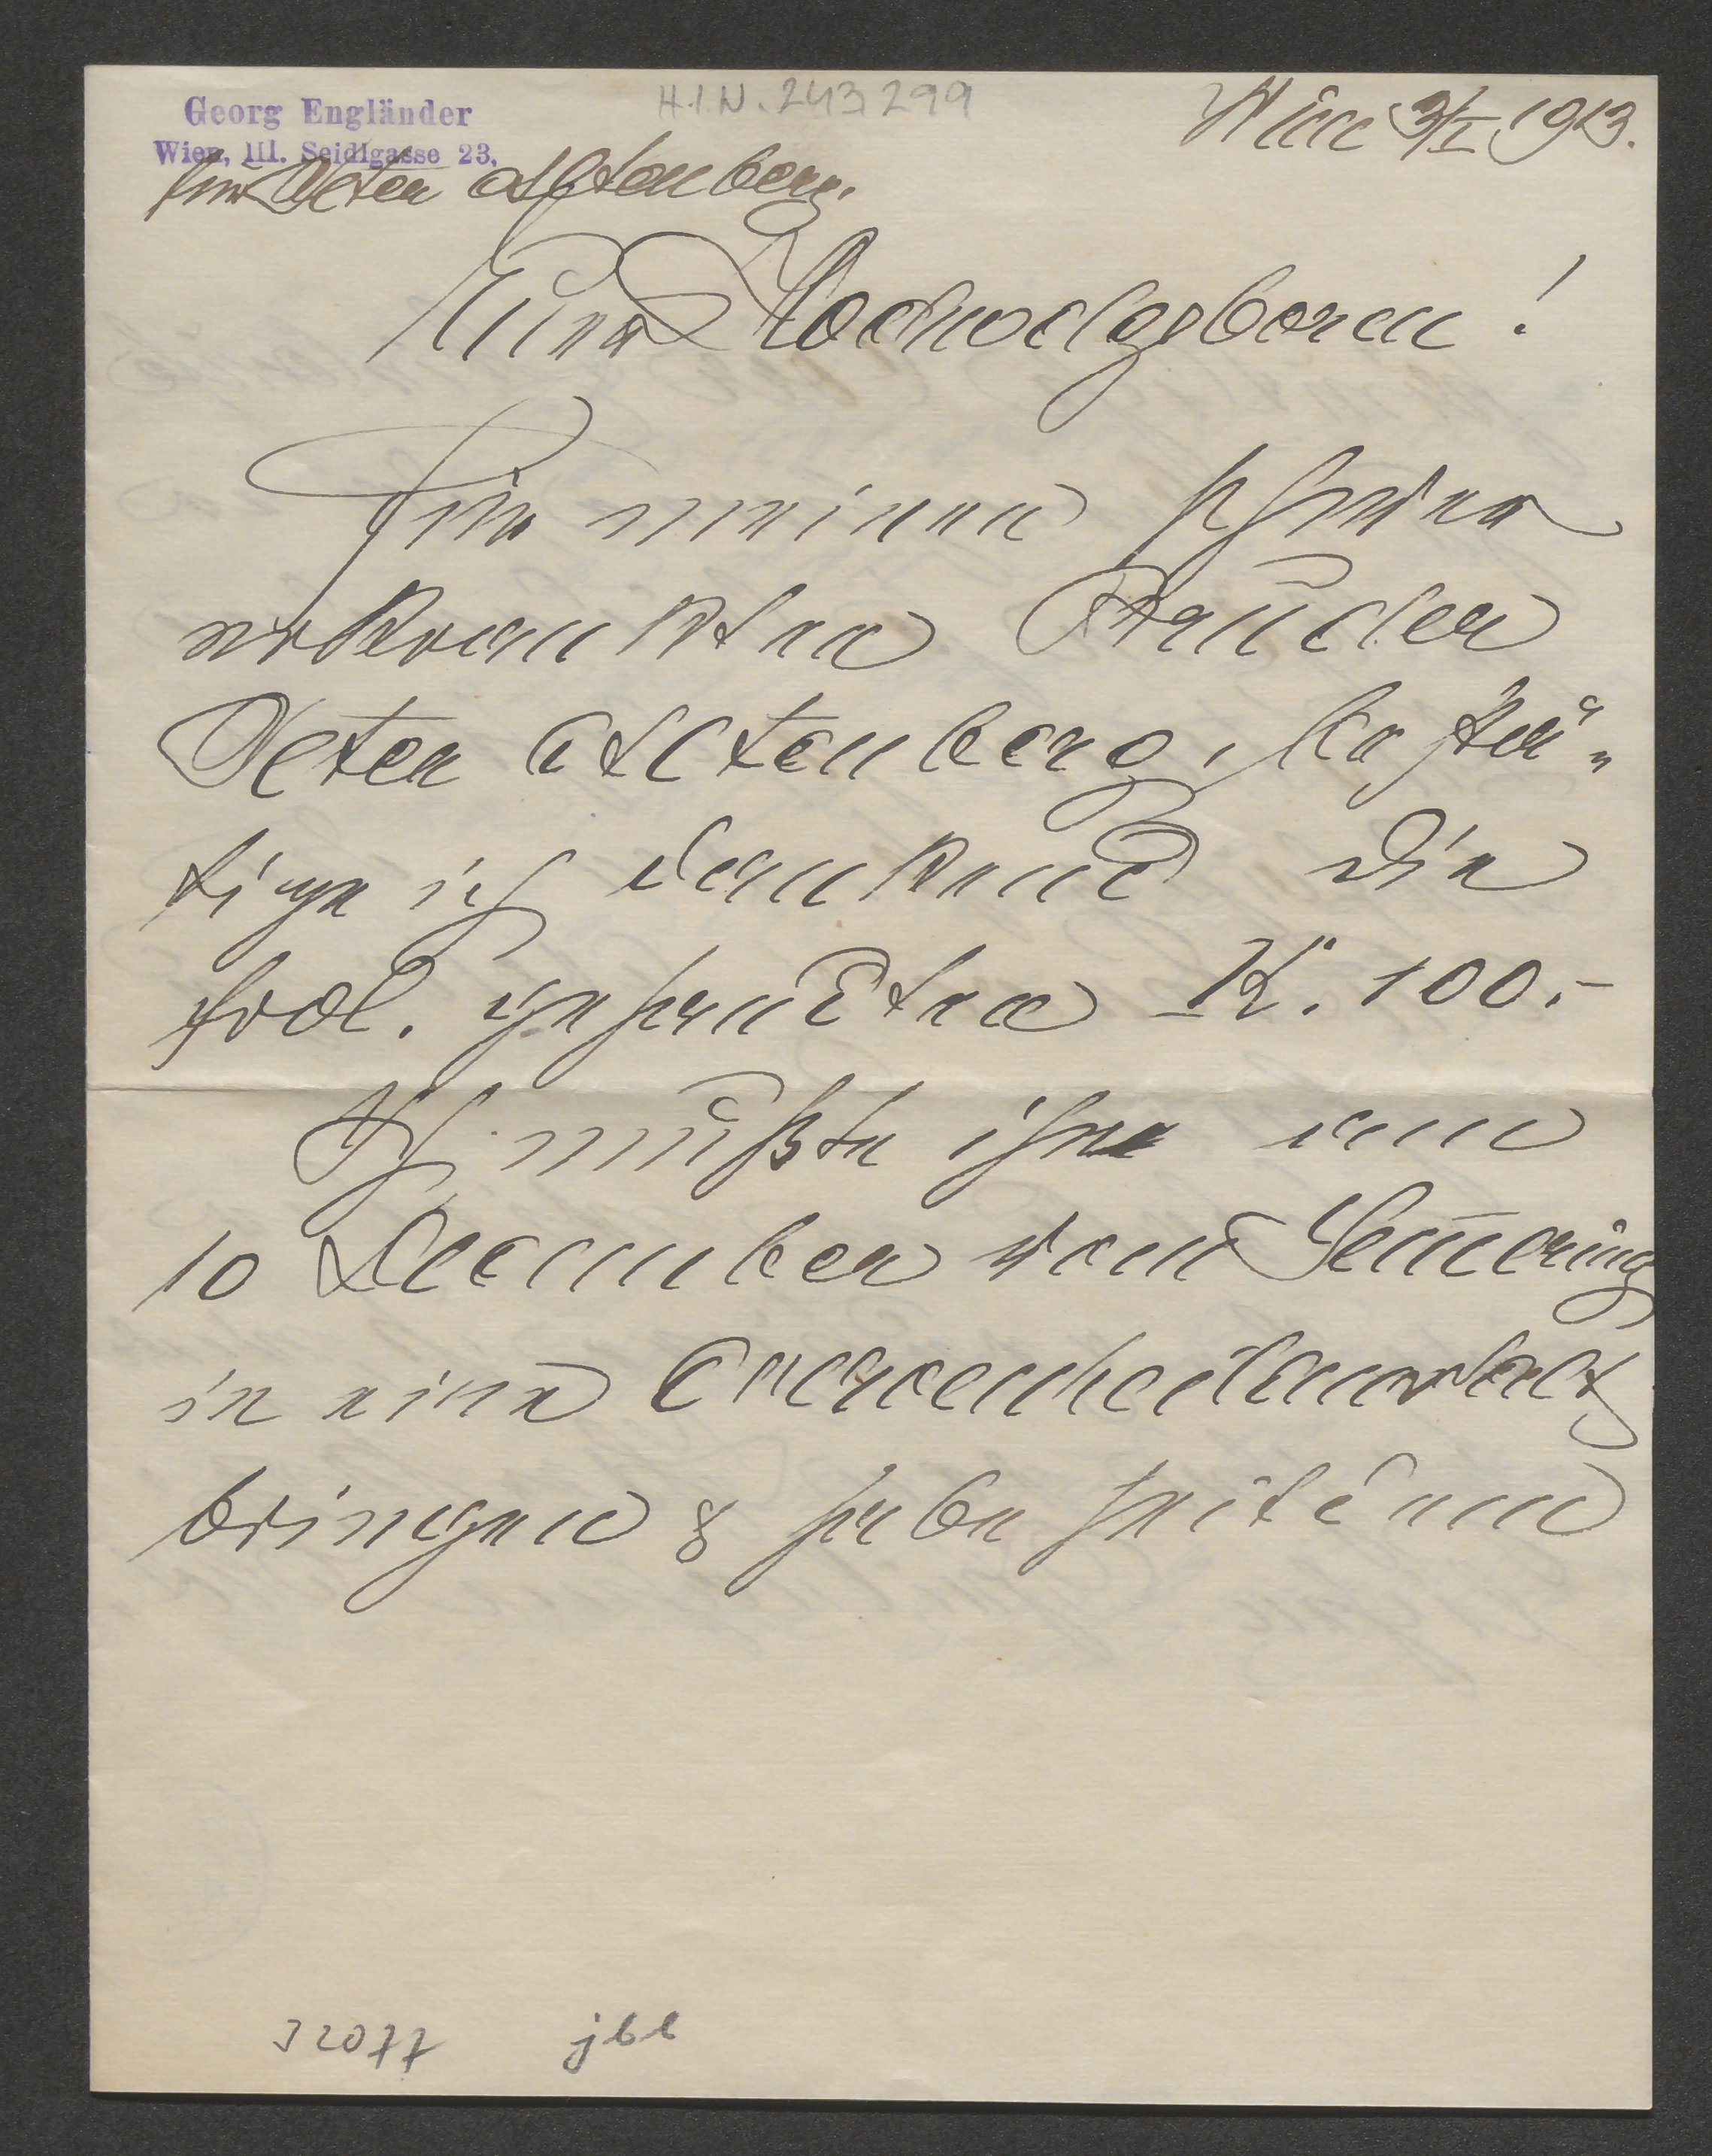 Georg Engländer
Wien, III. Seidlgasse 23.
H.I.N. 243299
Wien 3/I 1913.
für Peter Altenberg.
Euer Hochwolgeboren!
Für meinen schwer
erkrankten Bruder
Peter Altenberg, bestä„
tige ich dankend die
frdl. gesandten K. 100.–
Ich mußte ihn am
10 December vom Semering
in eine Nervenheilanstalt
bringen & habe seitdem
J 2077 jbb